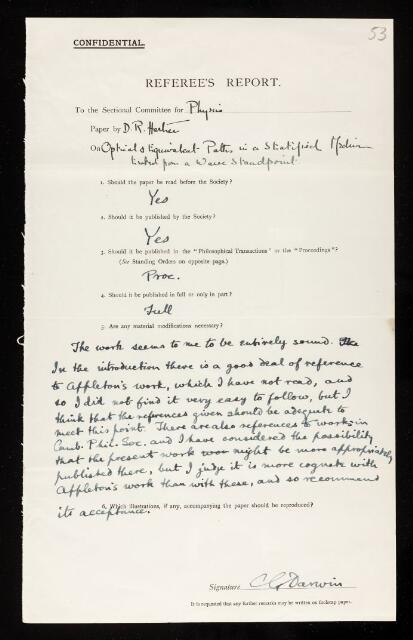 53
CONFIDENTIAL.
REFEREE'S REPORT.
To the Sectional Committee for Physics
Paper by D. R. Hartree
On Optical & Equivalent Paths in a Stratified Medium
treated from a Wave Standpoint.
1. Should the paper be read before the Society?
Yes
2. Should it be published by the Society?
Yes
3. Should it be published in the "Philosophical Transactions" or the "Proceedings"?
(See Standing Orders on opposite page.)
Proc.
4. Should it be published in full or only in part?
Full
5. Are any material modifications necessary?
The work seems to me to be entirely sound. The
In the introduction there is a good deal of reference
to Appleton's work, which I have not read, and
so I did not find it very easy to follow, but I
think that the references given should be adequate to
meet this point. There are also references to works in
Camb. Phil. Soc. and I have considered the possibility
that the present work might be more appropriately
published there, but I judge it is more cognate with
Appleton's work than with these, and so recommend
its acceptance.
6. Which illustrations, if any, accompanying the paper should be reproduced?
Signature C G Darwin
It is requested that any further remarks may be written on foolscap paper.